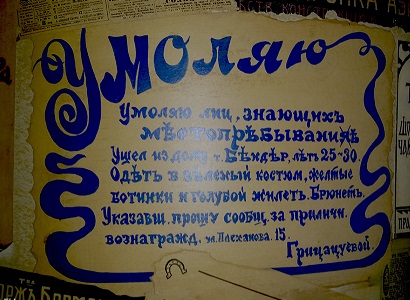 Умоляю
Умоляю лиц, знающихъ
мѣстопрѣбываниѣ
Ушел из дому т. Бендѣр, лѣтъ 25-30.
Одѣтъ в зеленый костюм, желтые
ботинки и голубой жилетъ. Брюнетъ.
Указавш. прошу сообщ. за приличн.
вознагражд. ул. Плеханова. 15.
Грицацуевой.